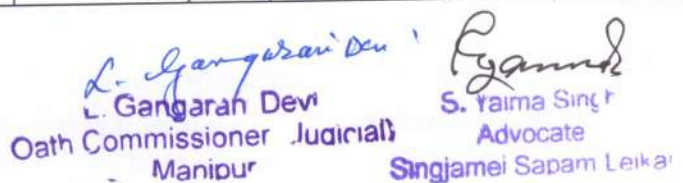 L. Gangarani Devi
L. Gangarani Devi
Oath Commissioner Judicial)
Manipur
S. Yaima Singh
Advocate
Singjamei Sapam Leikai